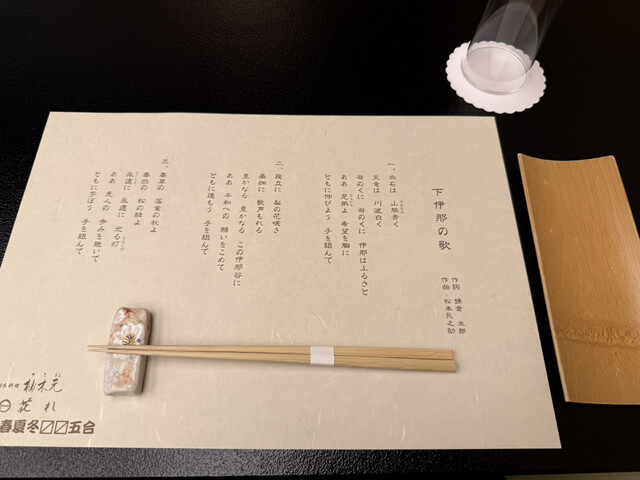 下伊那の歌
作詞 鎌倉 太郎
作曲 松本民之助
一、赤石は 山脈青く
天竜は 川波白く
谷のくに 谷のくに 伊那はふるさと
ああ 兄弟よ 希望を胸に
ともに伸びよう 手を組んで
二、段丘に 梨の花咲き
桑畑に 歌声もれる
豊かなる 豊かなる この伊那谷に
ああ 平和への 願いをこめて
ともに進もう 手を組んで
三、春草の 落葉の秋よ
春田の 松の緑よ
永遠に 永遠に 光る灯
ああ 先人の 歩みを継いで
ともに学ぼう 手を組んで
日本料理 柚木元
花札
春夏冬〼〼五合